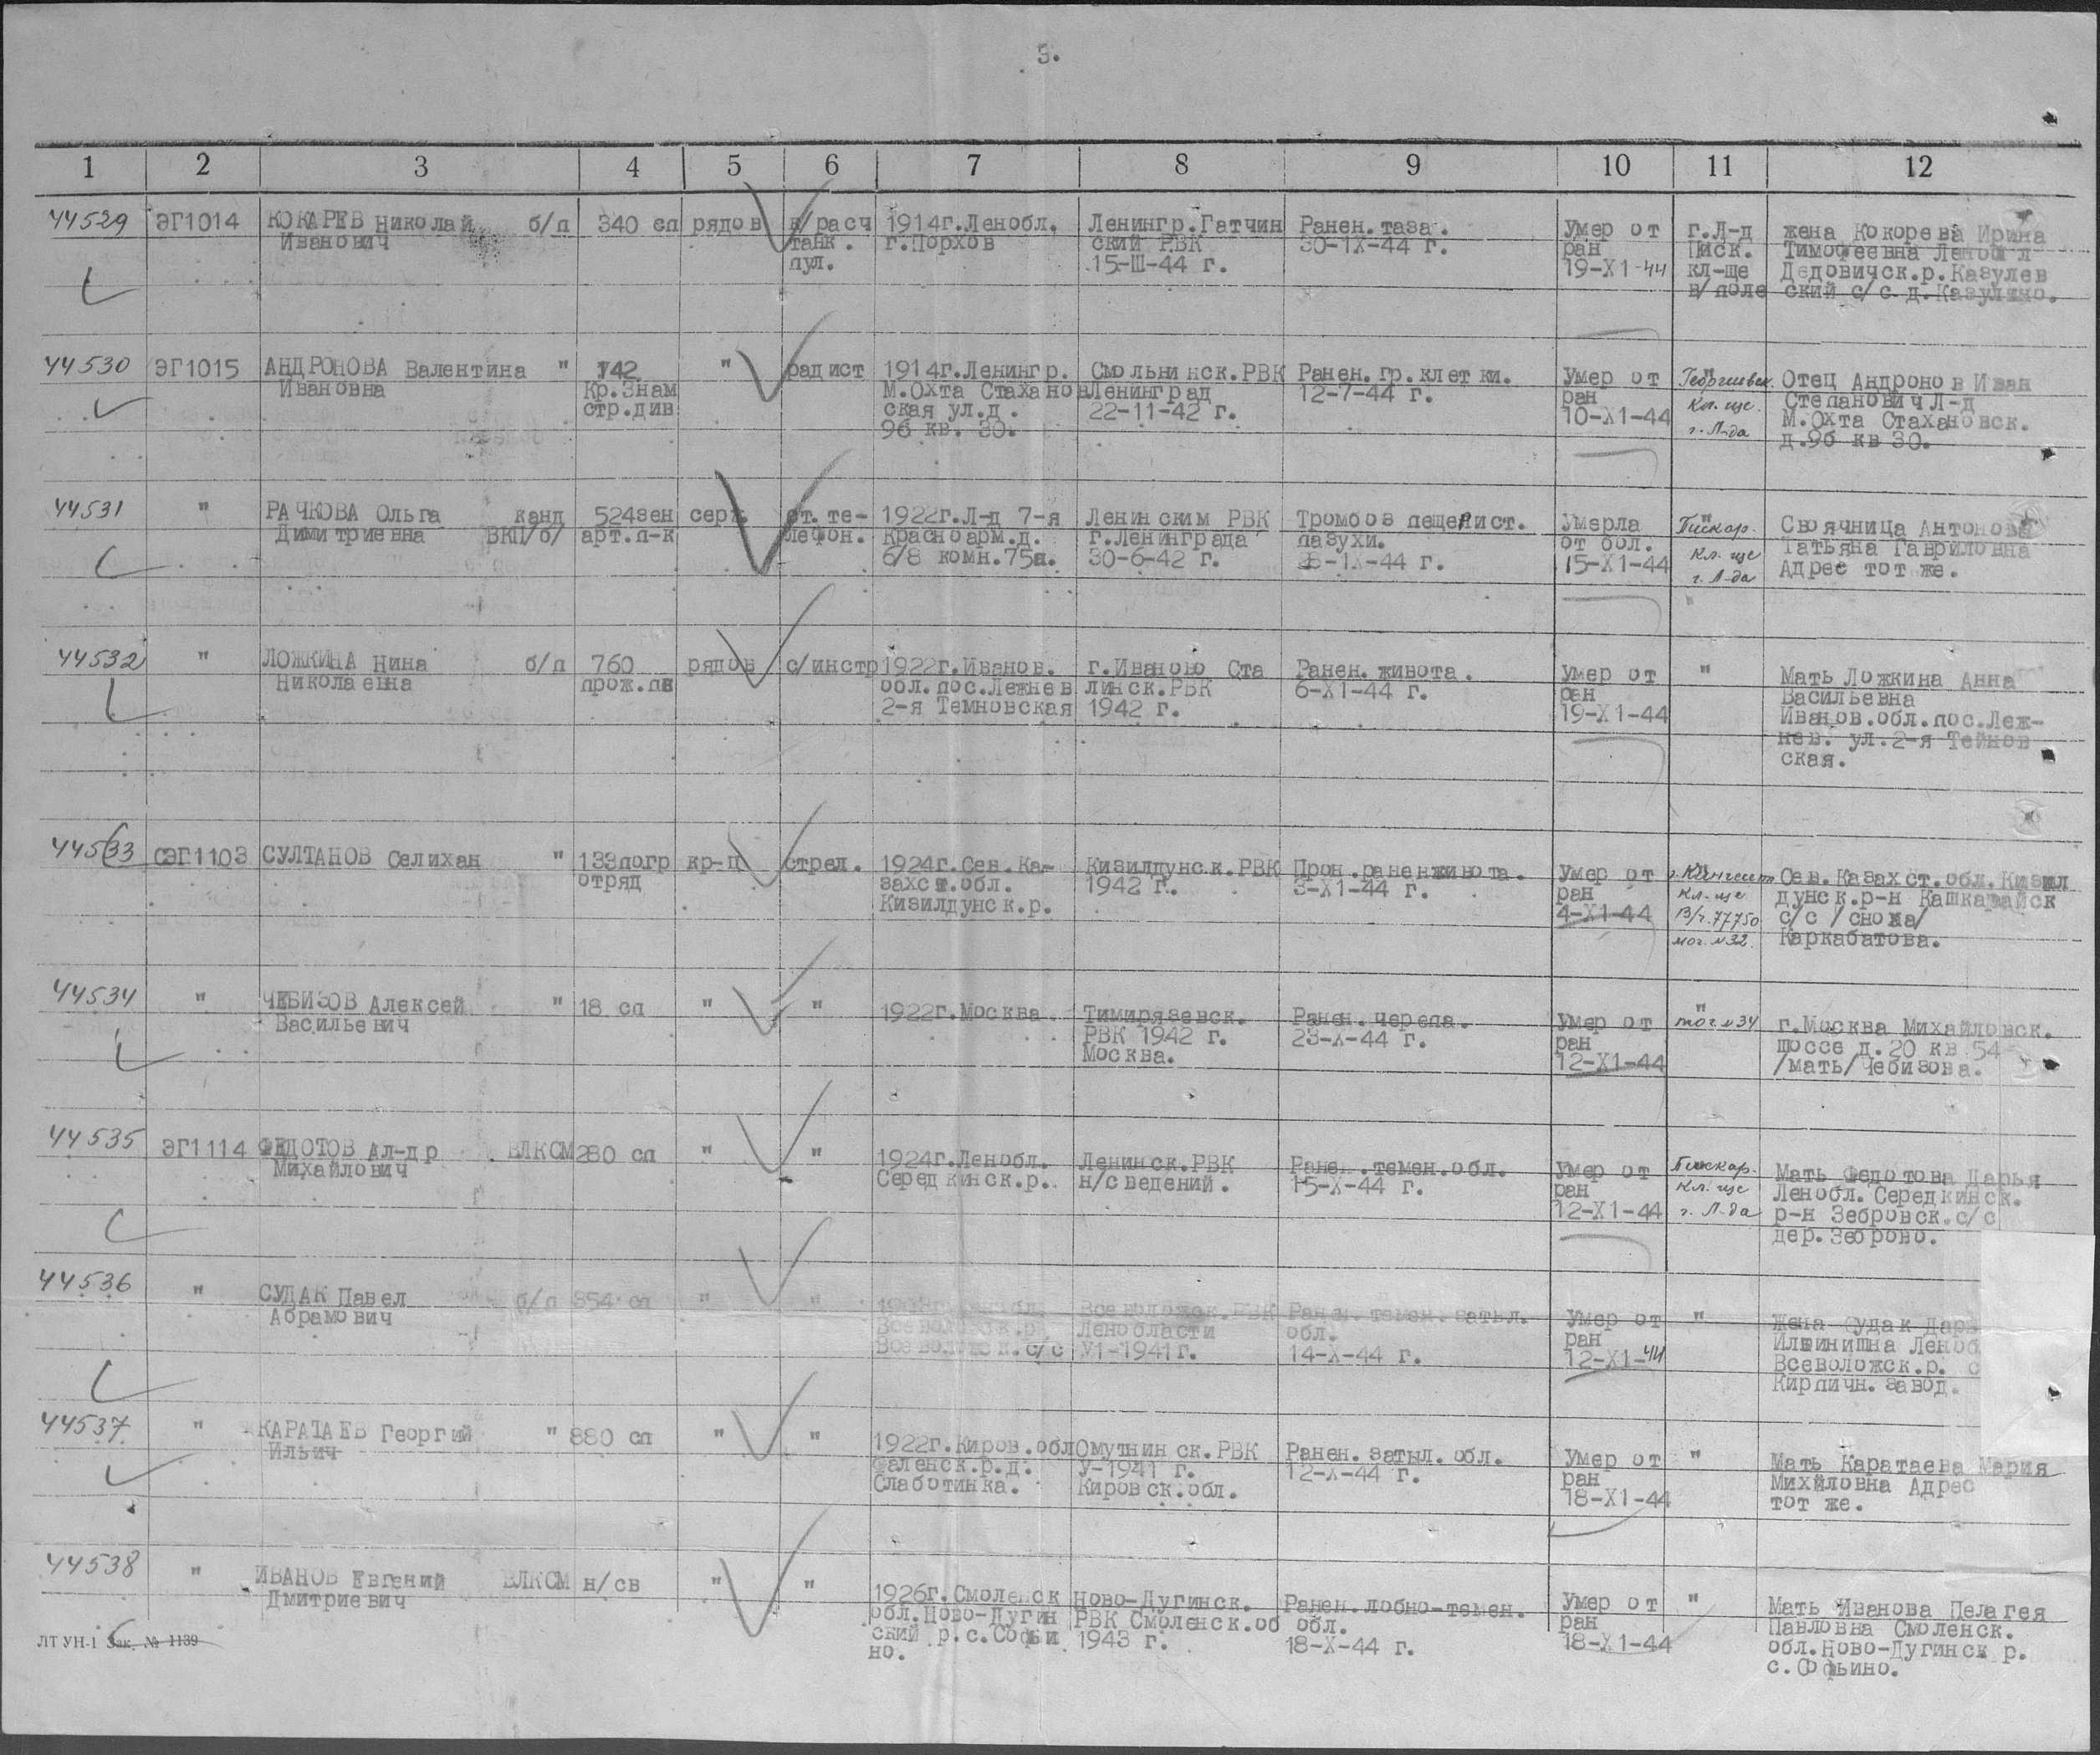 3.
1 2 3 4 5 6 7 8 9 10 11 12
44529 ЭГ1014 КОКАРЕВ Николай б/п 340 сп рядов н/расч 1914г.Ленобл. Ленингр.Гатчин Ранен.таза. Умер от г.Л-д жена Кокорева Ирина
Иванович танк. г.Порхов ский РВК 30-1Х-44 г. ран Писк. Тимофеевна Ленобл
пул. 15-Ш-44 г. 19-Х1-44 кл-ще Дедовичск.р.Казулев
в/поле ский с/с д.Казулино.
44530 ЭГ1015 АНДРОНОВА Валентина " 142 " радист 1914г.Ленингр. Смольнинск.РВК Ранен.гр.клетки. Умер от Георгиевск. Отец Андронов Иван
Ивановна Кр.Знам М.Охта Стаханов Ленинград 12-7-44 г. ран Кл-ще Степанович Л-д
стр.див ская ул.д. 22-11-42 г. 10-Х1-44 г. Л-да М.Охта Стахановск.
96 кв. 30. д.96 кв 30.
44531 " РАЧКОВА Ольга канд 524зен серж. ст.те- 1922г.Л-д 7-я Ленинским РВК Тромбоз пещерист. Умерла " Пискар. Своячница Антонова
Димитриевна ВКП/б/ арт.п-к лефон. Красноарм.д. г.Ленинграда пазухи. от бол. Кл-ще Татьяна Гавриловна
6/8 комн.75а. 30-6-42 г. -1Х-44 г. 15-Х1-44 г. Л-да Адрес тот же.
44532 " ЛОЖКИНА Нина б/п 760 рядов с/инстр 1922г.Иванов. г.Иваново Ста Ранен.живота. Умер от " Мать Ложкина Анна
Николаевна прож.пв обл.пос.Лежнев линск.РВК 6-Х1-44 г. ран Васильевна
2-я Темновская 1942 г. 19-Х1-44 Иванов.обл.пос.Леж-
нев. ул.2-я Тейнов
ская.
44533 СЭГ1103 СУЛТАНОВ Селихан " 133погр кр-ц стрел. 1924г.Сев.Ка- Кизилдунск.РВК Прон.ранен живота. Умер от Сев.Казахст.обл.Кизил
отряд захст.обл. 1942 г. 3-Х1-44 г. ран Кл-ще дунск.р-н
Кизилдунск.р. 4-Х1-44 В/ч.77750 с/с /сноха/
мог.№32. Каркабатова.
44534 " ЧЕБИЗОВ Алексей " 18 сп " " 1922г.Москва Тимирязевск. Ранен.черепа. Умер от " мог №34 г.Москва Михайловск.
Васильевич РВК 1942 г. 23-Х-44 г. ран шоссе д.20 кв 54
Москва. 12-Х1-44 /мать/Чебизова.
44535 ЭГ1114 ФЕДОТОВ Ал-др ВЛКСМ 280 сп " " 1924г.Ленобл. Ленинск.РВК Ранен.темен.обл. Умер от Пискар. Мать Федотова Дарья
Михайлович Середкинск.р. н/сведений. 15-Х-44 г. ран Кл-ще Ленобл.Середкинск.
12-Х1-44 г. Л-да р-н Зебровск.с/с
дер.Зеброво.
44536 " СУДАК Павел б/п 854 сп " " Всеволожск.РВК Ранен.темен.затыл. Умер от " Жена Судак Дарь
Абрамович Всеволожск.р. Ленобласти обл. ран Ильинишна Леноб
Всеволожск.с/с У1-1941г. 14-Х-44 г. 12-Х1-44 Всеволожск.р. с
Кирпичн.завод.
44537 " КАРАТАЕВ Георгий " 880 сп " " 1922г.Киров.обл Омутнинск.РВК Ранен.затыл.обл. Умер от " Мать Каратаева Мария
Ильич Фаленск.р.д. У-1941 г. 12-Х-44 г. ран Михйловна Адрес
Слаботинка. Кировск.обл. 18-Х1-44 тот же.
44538 " ИВАНОВ Евгений ВЛКСМ н/св " " 1926г.Смоленск Ново-Дугинск. Ранен.лобно-темен. Умер от " Мать Иванова Пелагея
Дмитриевич обл.Ново-Дугин РВК Смоленск.об обл. ран Павловна Смоленск.
ский р.с.Софьи 1943 г. 18-Х-44 г. 18-Х1-44 обл.Ново-Дугинск р.
но. с.Офьино.
ЛТ УН-1 Зак. № 1139